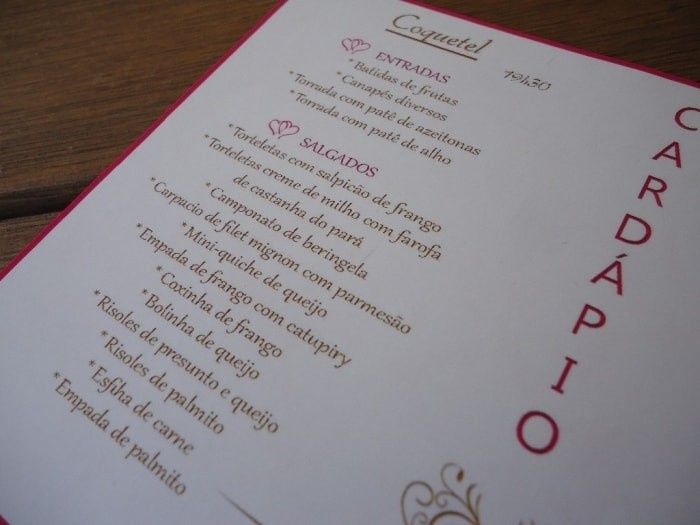 Coquetel 19h30
ENTRADAS
*Batidas de frutas
*Canapés diversos
*Torrada com patê de azeitonas
*Torrada com patê de alho
SALGADOS
*Torteletas com salpicão de frango
*Torteletas creme de milho com farofa
de castanha do pará
*Camponato de beringela
*Carpacio de filet mignon com parmesão
*Mini-quiche de queijo
*Empada de frango com catupiry
*Coxinha de frango
*Bolinha de queijo
*Risoles de presunto e queijo
*Risoles de palmito
*Esfiha de carne
*Empada de palmito
CARDÁPIO